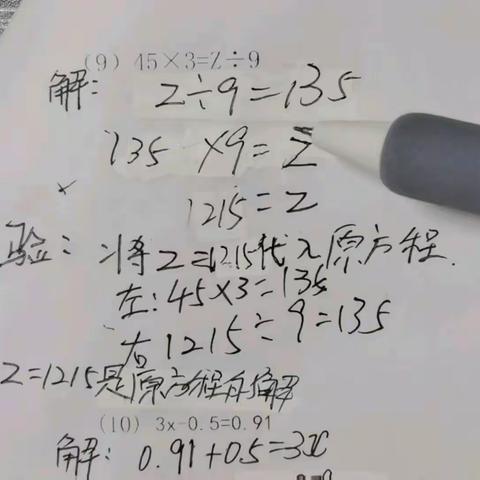 (9) 45×3=Z÷9
解: Z÷9=135
135 ×9=Z
1215=Z
验: 将Z=1215代入原方程.
左:45×3=135
右1215÷9=135
Z=1215是原方程的解
(10) 3x-0.5=0.91
解: 0.91+0.5=3x